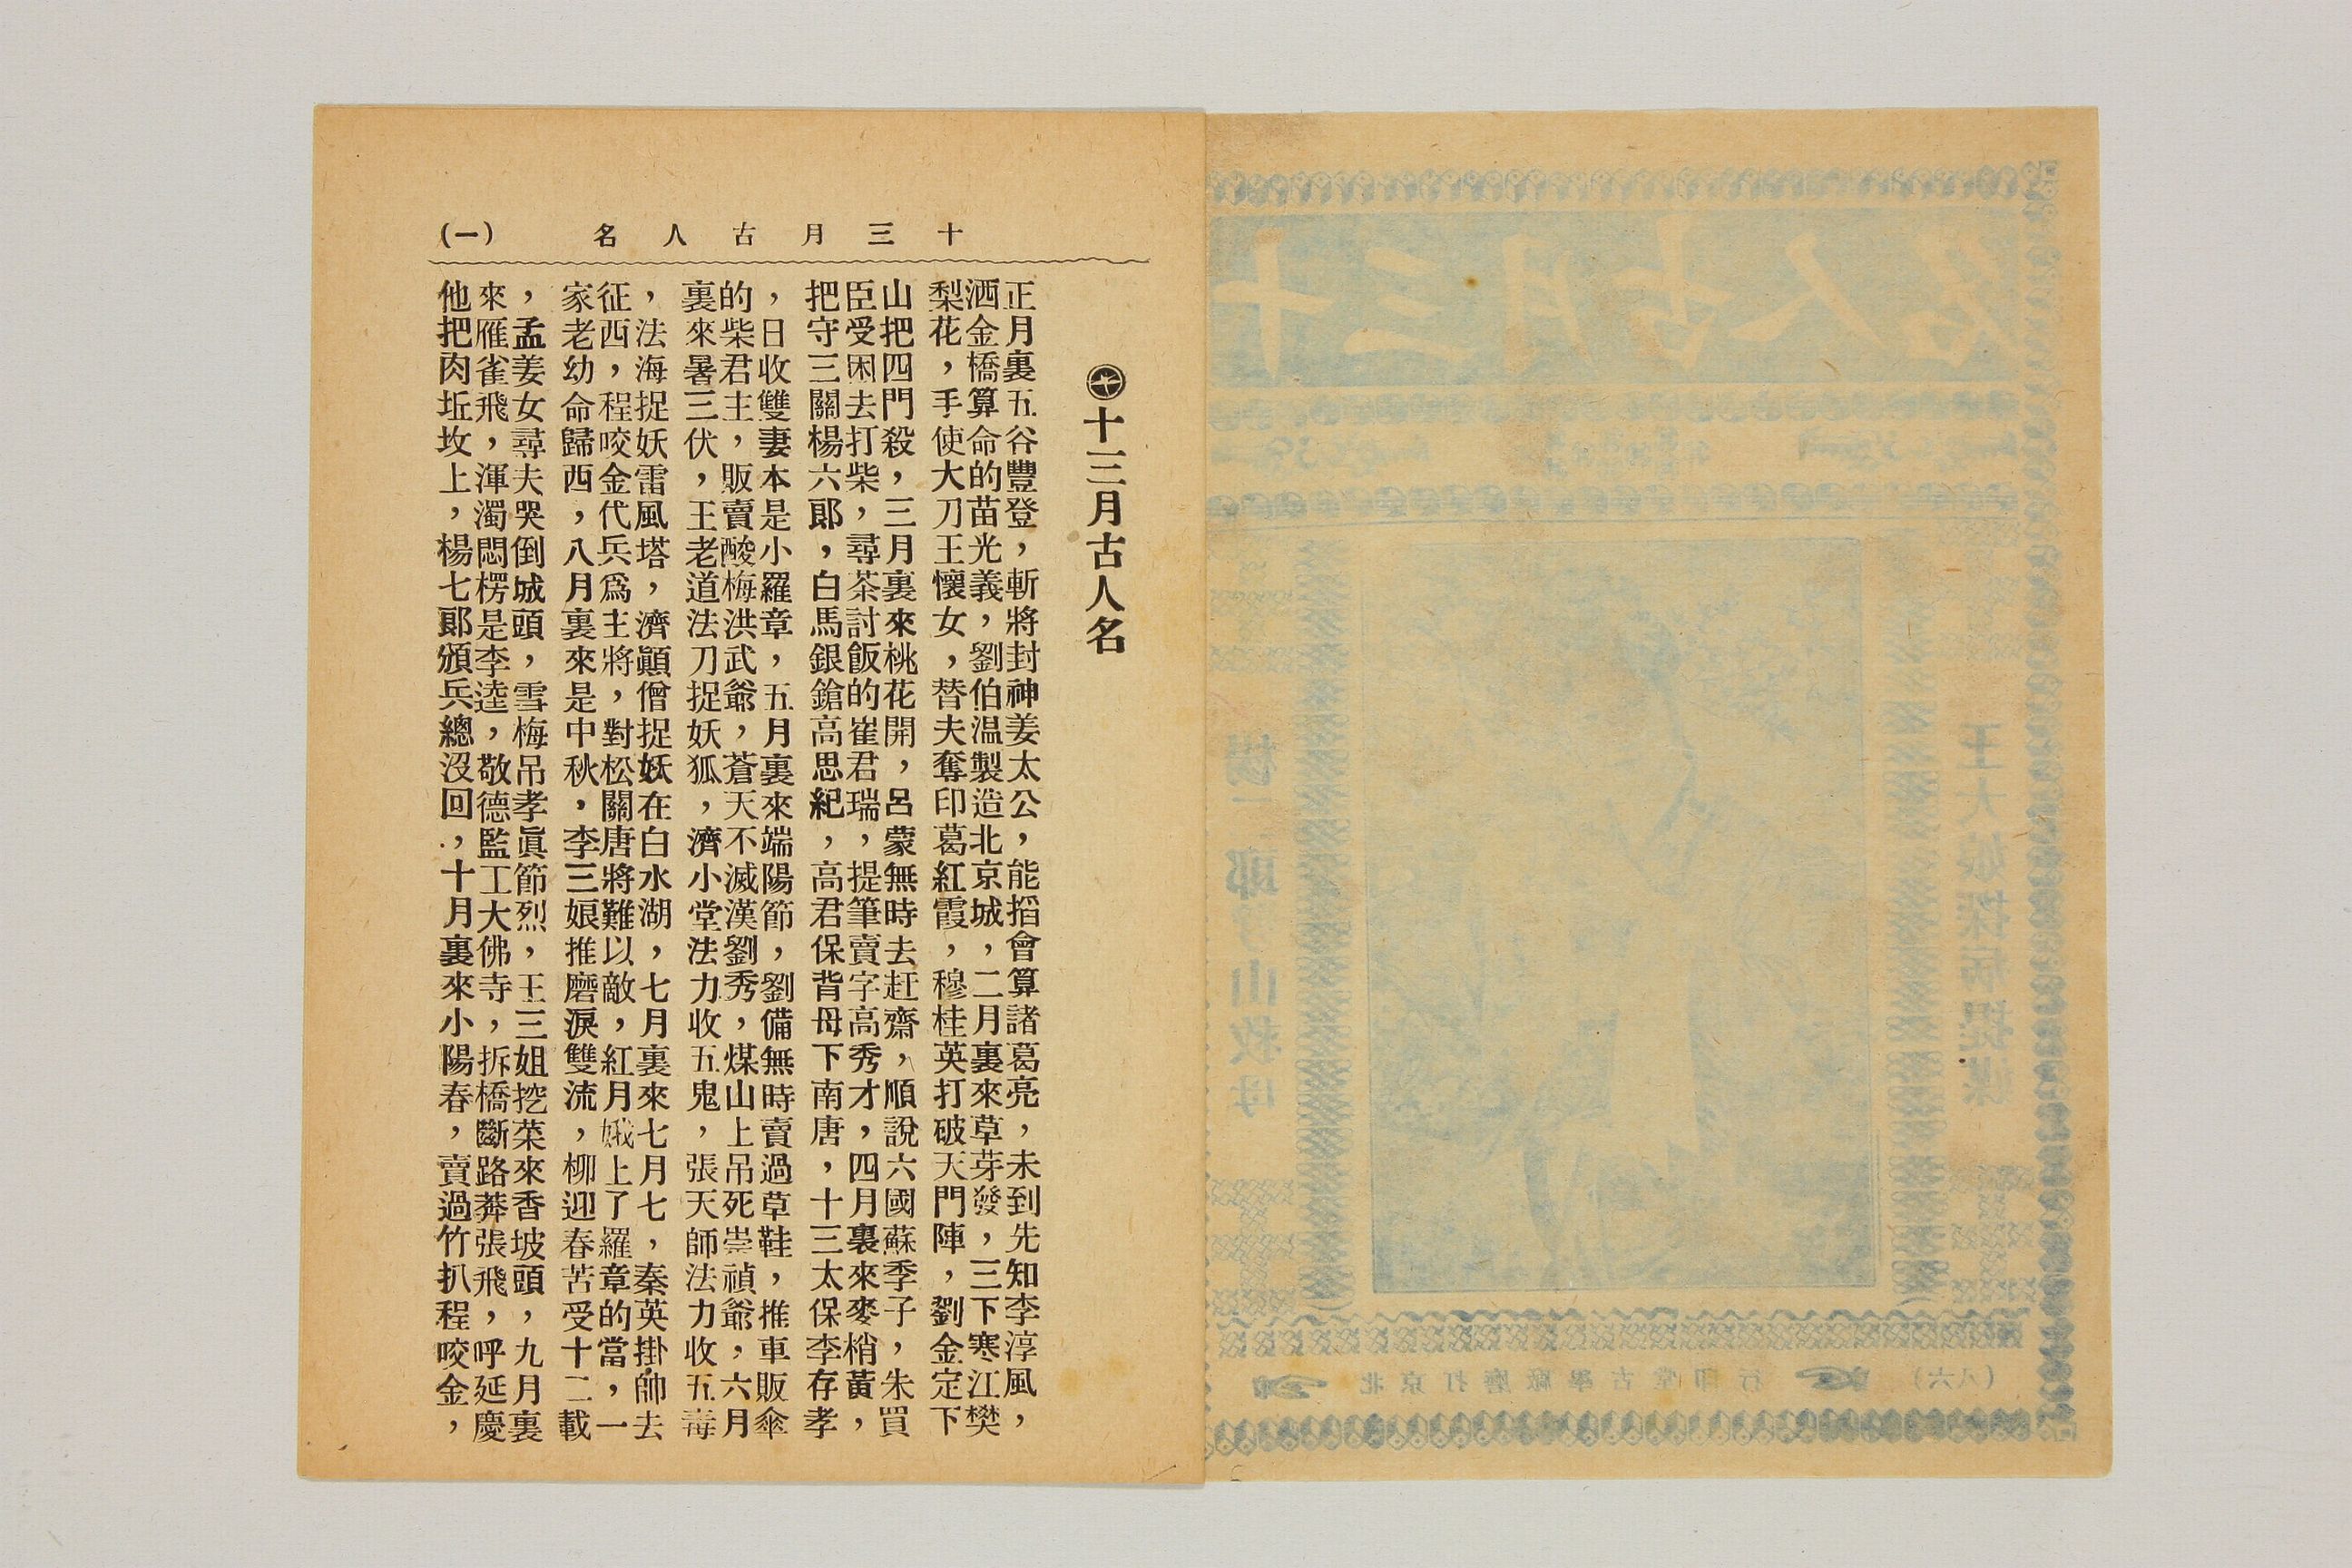 十三月古人名　(一)
十三月古人名
正月裏五谷豐登，斬將封神姜太公，能搯會算諸葛亮，未到先知李淳風，
洒金橋算命的苗光義，劉伯温製造北京城，二月裏來草芽發，三下寒江樊
梨花，手使大刀王懷女，替夫奪印葛紅霞，穆桂英打破天門陣，劉金定下
山把四門殺，三月裏來桃花開，呂蒙無時去赶齋，順說六國蘇季子，朱買
臣受困去打柴，尋茶討飯的崔君瑞，提筆賣字高秀才，四月裏來麥梢黃，
把守三關楊六郎，白馬銀鎗高思紀，高君保背母下南唐，十三太保李存孝
，日收雙妻本是小羅章，五月裏來端陽節，劉備無時賣過草鞋，推車販傘
的柴君主，販賣酸梅洪武爺，蒼天不滅漢劉秀，煤山上吊死崇禎爺，六月
裏來暑三伏，王老道法刀捉妖狐，濟小堂法力收五鬼，張天師法力收五毒
，法海捉妖雷風塔，濟顚僧捉妖在白水湖，七月裏來七月七，秦英掛帥去
征西，程咬金代兵爲主將，對松關唐將難以敵，紅月娥上了羅章的當，一
家老幼命歸西，八月裏來是中秋，李三娘推磨淚雙流，柳迎春苦受十二載
，孟姜女尋夫哭倒城頭，雪梅吊孝眞節烈，王三姐挖菜來香坡頭，九月裏
來雁雀飛，渾濁悶楞是李逵，敬德監工大佛寺，拆橋斷路莽張飛，呼延慶
他把肉坵坟上，楊七郎頒兵總沒回，十月裏來小陽春，賣過竹扒程咬金，
十三月古人名
王大娘探病提媒
楊二郎劈山救母
(八六)
北京打磨廠學古堂印行